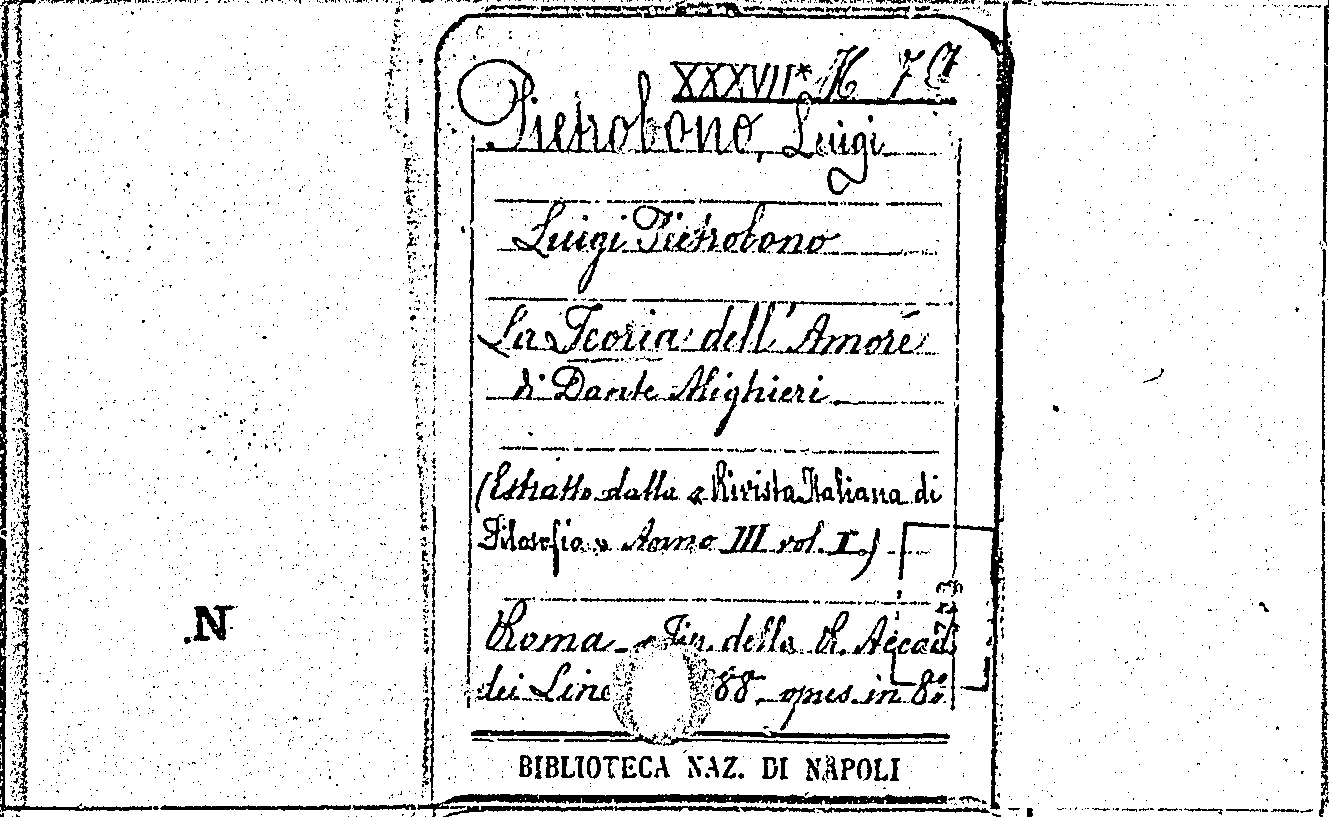 XXXVII* H 7
Pietrobono, Luigi
Luigi Pietrobono
La Teoria dell' Amore
di Dante Alighieri
(Estratto dalla « Rivista Italiana di
Filosofia » Anno III vol. I.)
Roma - Tip. della R. Accad.
dei Line 88 - opus. in 8º
N
BIBLIOTECA NAZ. DI NAPOLI